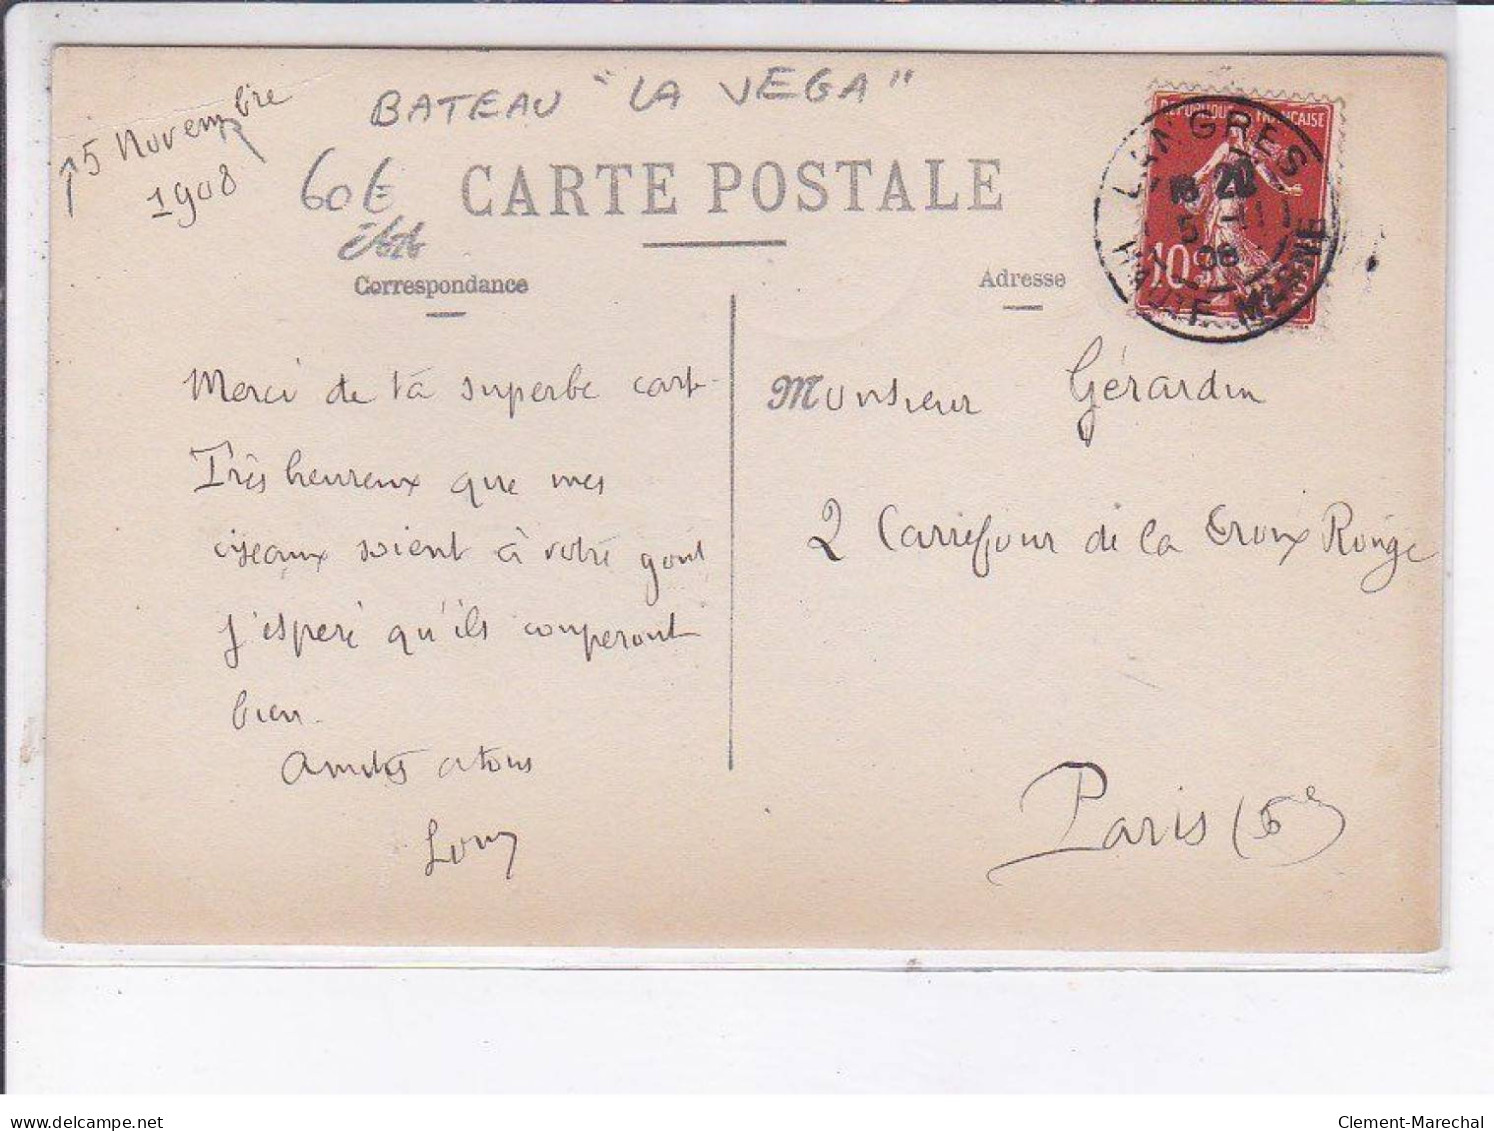 BATEAU "LA VEGA"
5 Novembre
1908
60€
CARTE POSTALE
Correspondance
Adresse
REPUBLIQUE FRANÇAISE
10
LANGRES
18 20
5 -11
08
HAUTE-MARNE
Merci de ta superbe carte
Très heureux que mes
ciseaux soient à votre gout
J'espere qu'ils couperont
bien.
Amitiés a tous
Monsieur Gérardin
2 Carrefour de la Croix Rouge
Paris (6e)
delcampe.net
Clement-Marechal